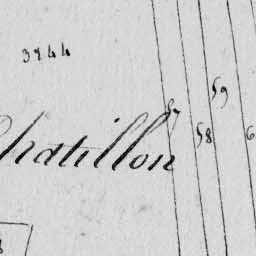 3744
59
57
58
6
Chatillon